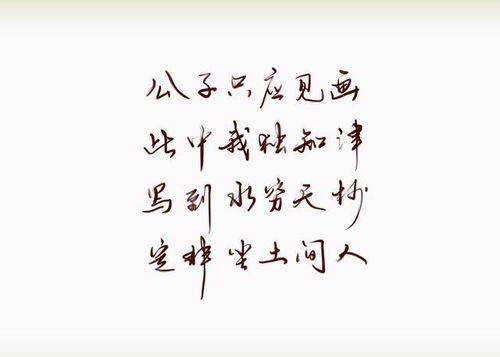 公子只应见画
此中我独知津
写到水穷天杪
定非尘土间人